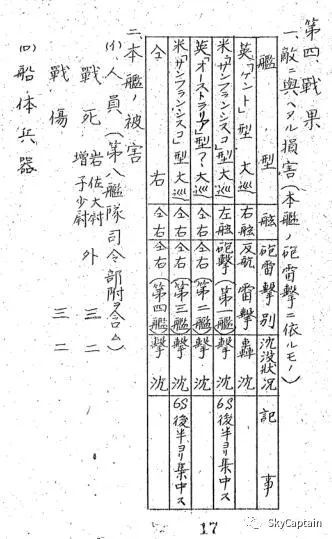 第四 戰果
一、敵ニ與ヘタル損害(本艦ノ砲雷擊ニ依ルモノ)
艦型 舷 砲雷擊別 沈没狀況 記事
英「ケント」型 大巡 右舷 反航 雷擊 轟沈
米「サンフランシスコ」型大巡 左舷 砲擊(第一艦) 擊沈 6S後半ヨリ集中ス
英「オーストラリア」型?大巡 仝右 仝右(第二艦) 擊沈
米「サンフランシスコ」型大巡 仝右 仝右(第三艦) 擊沈 6S後半ヨリ集中ス
仝右 仝右 仝右(第四艦) 擊沈
二、本艦ノ被害
(イ)人員(第八艦隊司令部附ヲ含ム)
戰死 岩佐大尉 増子少尉 外 三二
戰傷 三二
(ロ)船体兵器
17
SkyCaptain